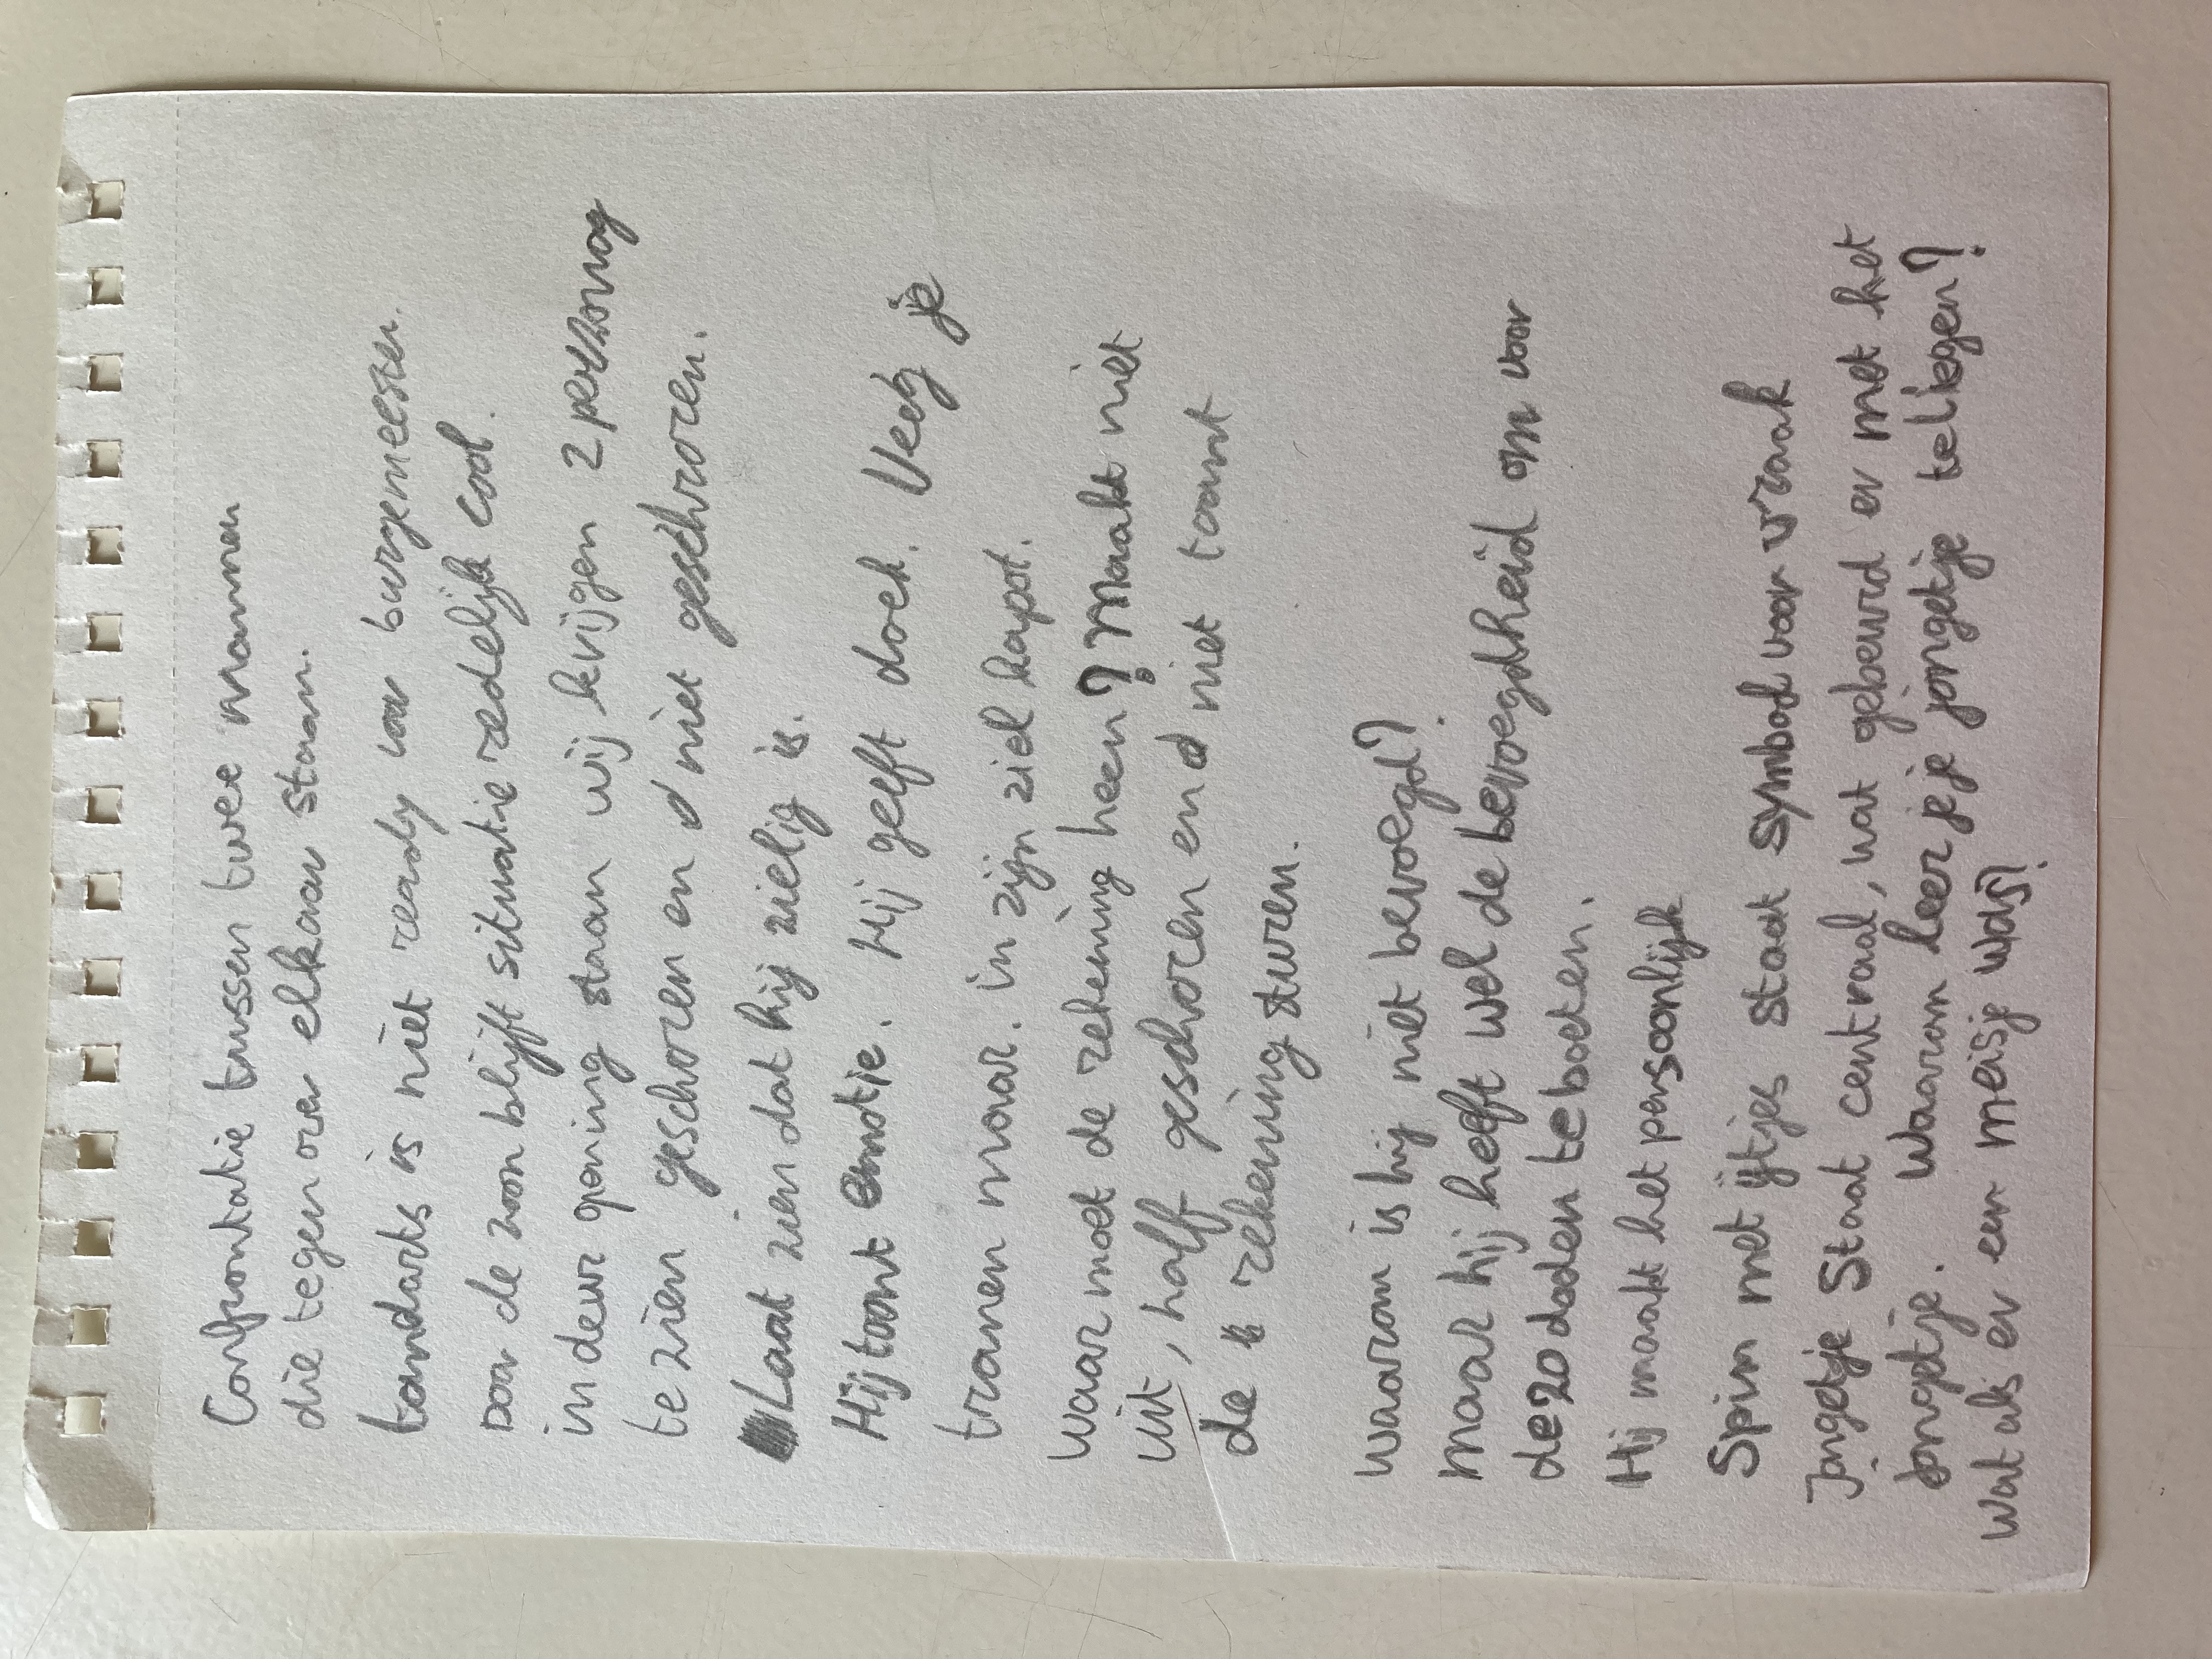 Confrontatie tussen twee mannen
die tegen over elkaar staan.
tandarts is niet ready voor burgemeester.
Door de zoon blijft situatie redelijk cool.
in deur opening staan wij krijgen 2 personag
te zien geschoren en niet geschroren.
Laat zien dat hij zielig is.
Hij toont emotie. Hij geeft doek. Veeg je
tranen maar. in zijn ziel kapot.
Waar moet de rekening heen? Maakt niet
uit, half geschoren en niet toont
de rekening sturen.
Waarom is hij niet bevoegd?
maar hij heeft wel de bevoegdheid om voor
de 20 doden te boeten.
Hij maakt het persoonlijk
Spin met ijtjes staat symbool voor wraak
Jongetje Staat centraal, wat gebeurd er met het
Jongetje. Waarom leer je je jongetje te liegen?
Wat als er een meisje was?